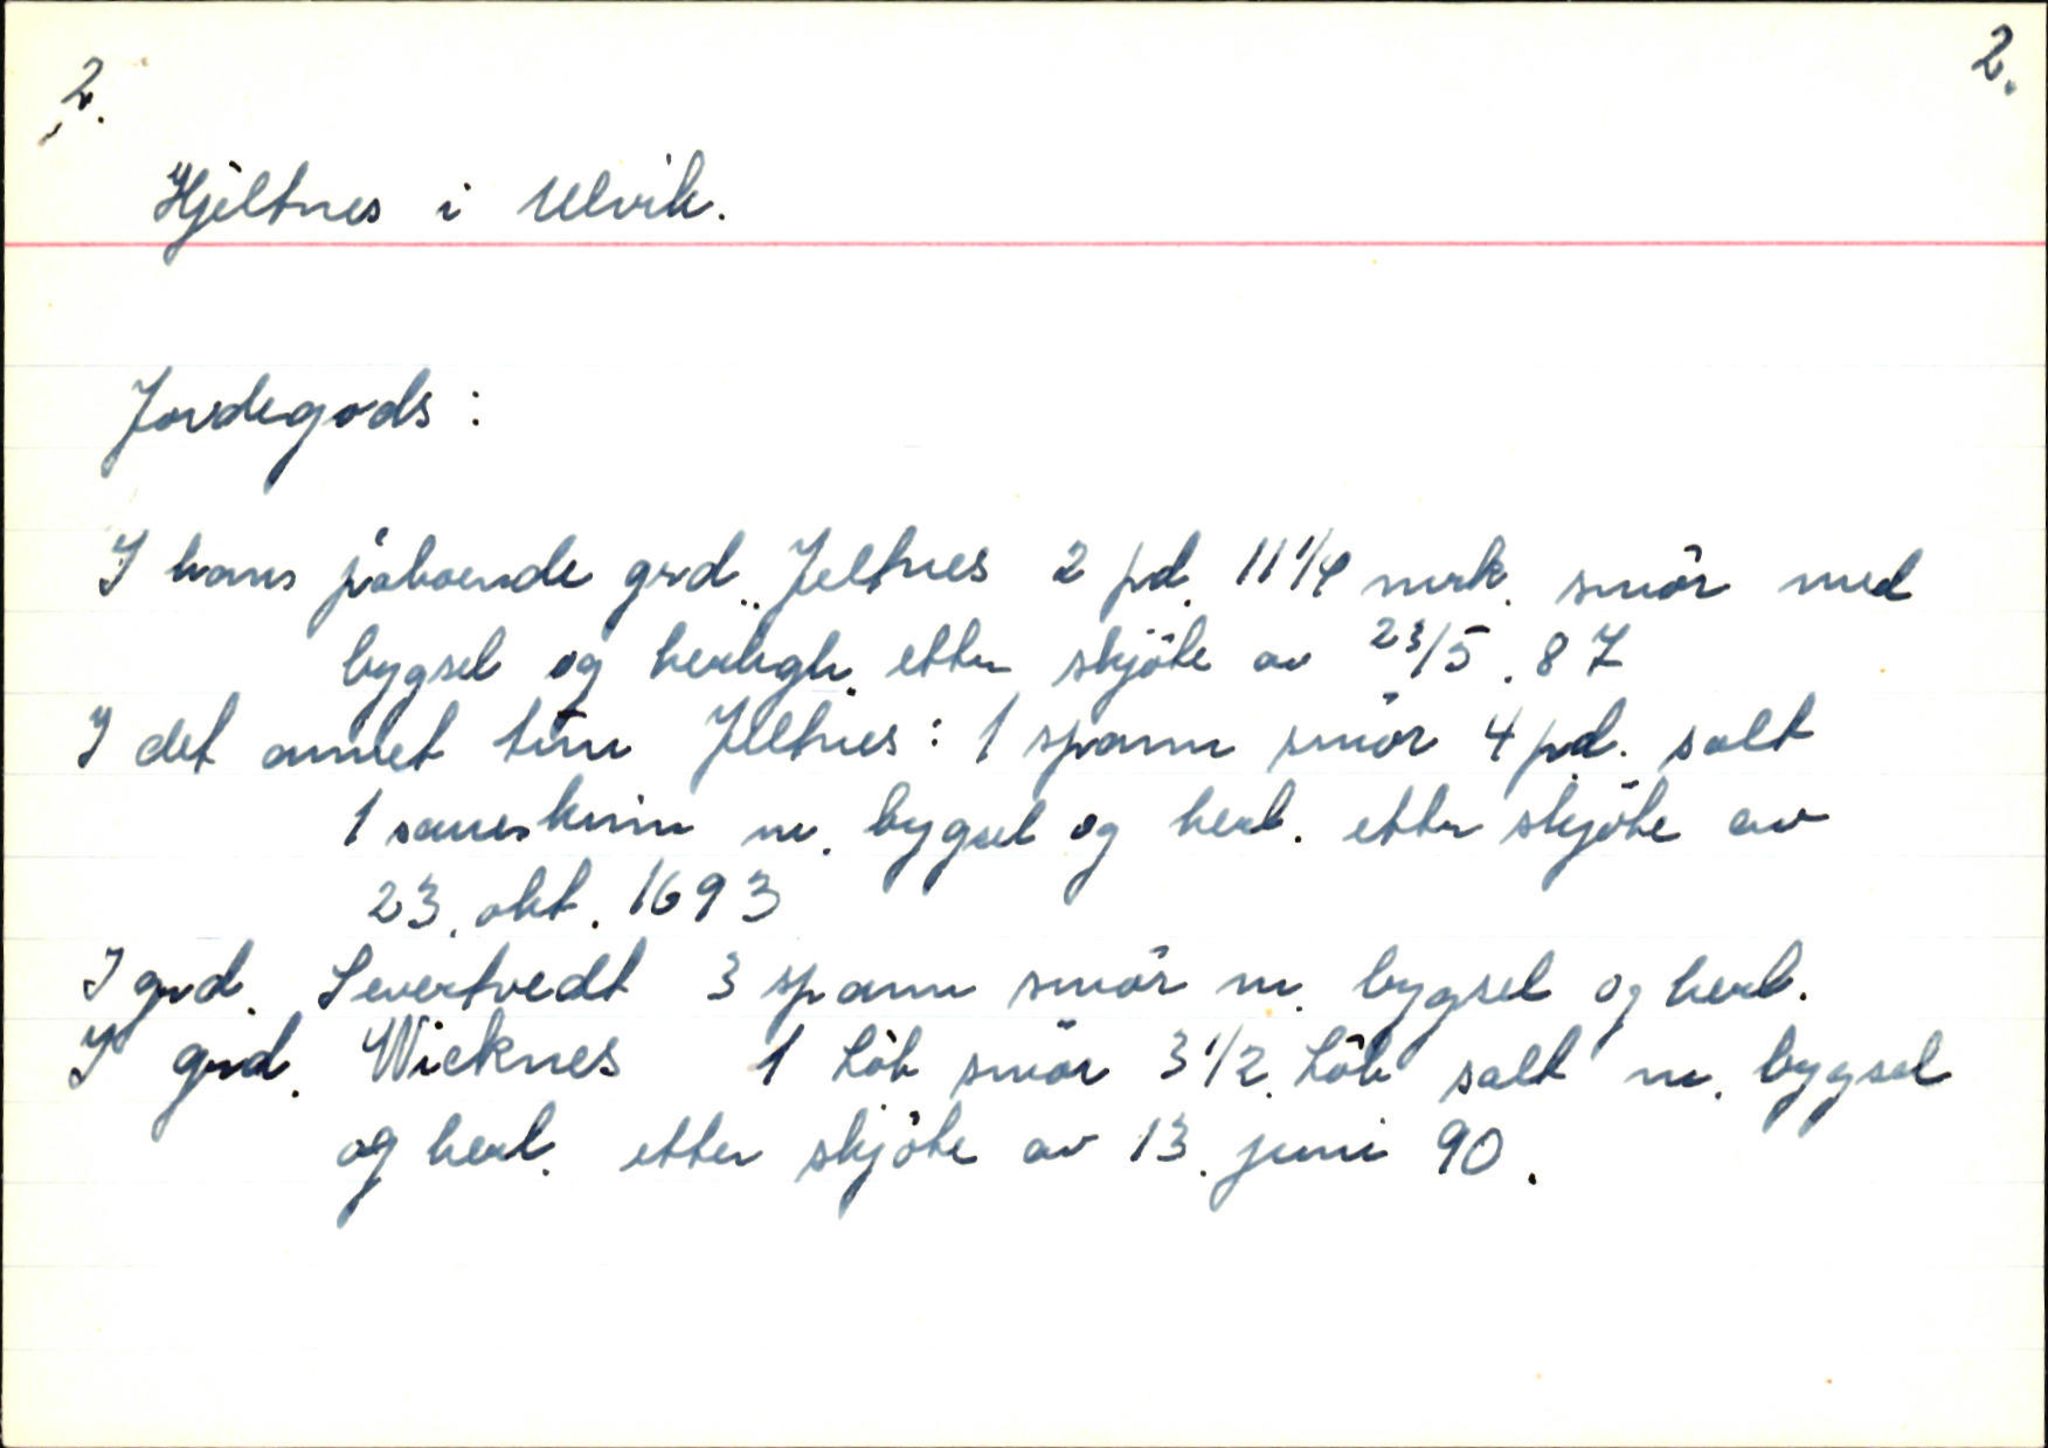 2. 2.
Hjeltnes i Ulvik.
Jordegods:
I hans påboende grd. Jeltnes 2 pd. 11 1/4 mrk. smör med
bygsel og herligh. etter skjöte av 23/5. 87
I det annet tun Jeltnes: 1 spann smör 4 pd. salt
1 saueskinn m. bygsel og herl. etter skjöte av
23. okt. 1693
I grd. Severtvedt 3 spann smör m. bygsel og herl.
I grd. Wicknes 1 Löb smör 3 1/2 Löb salt m. bygsel
og herl. etter skjöte av 13. juni 90.